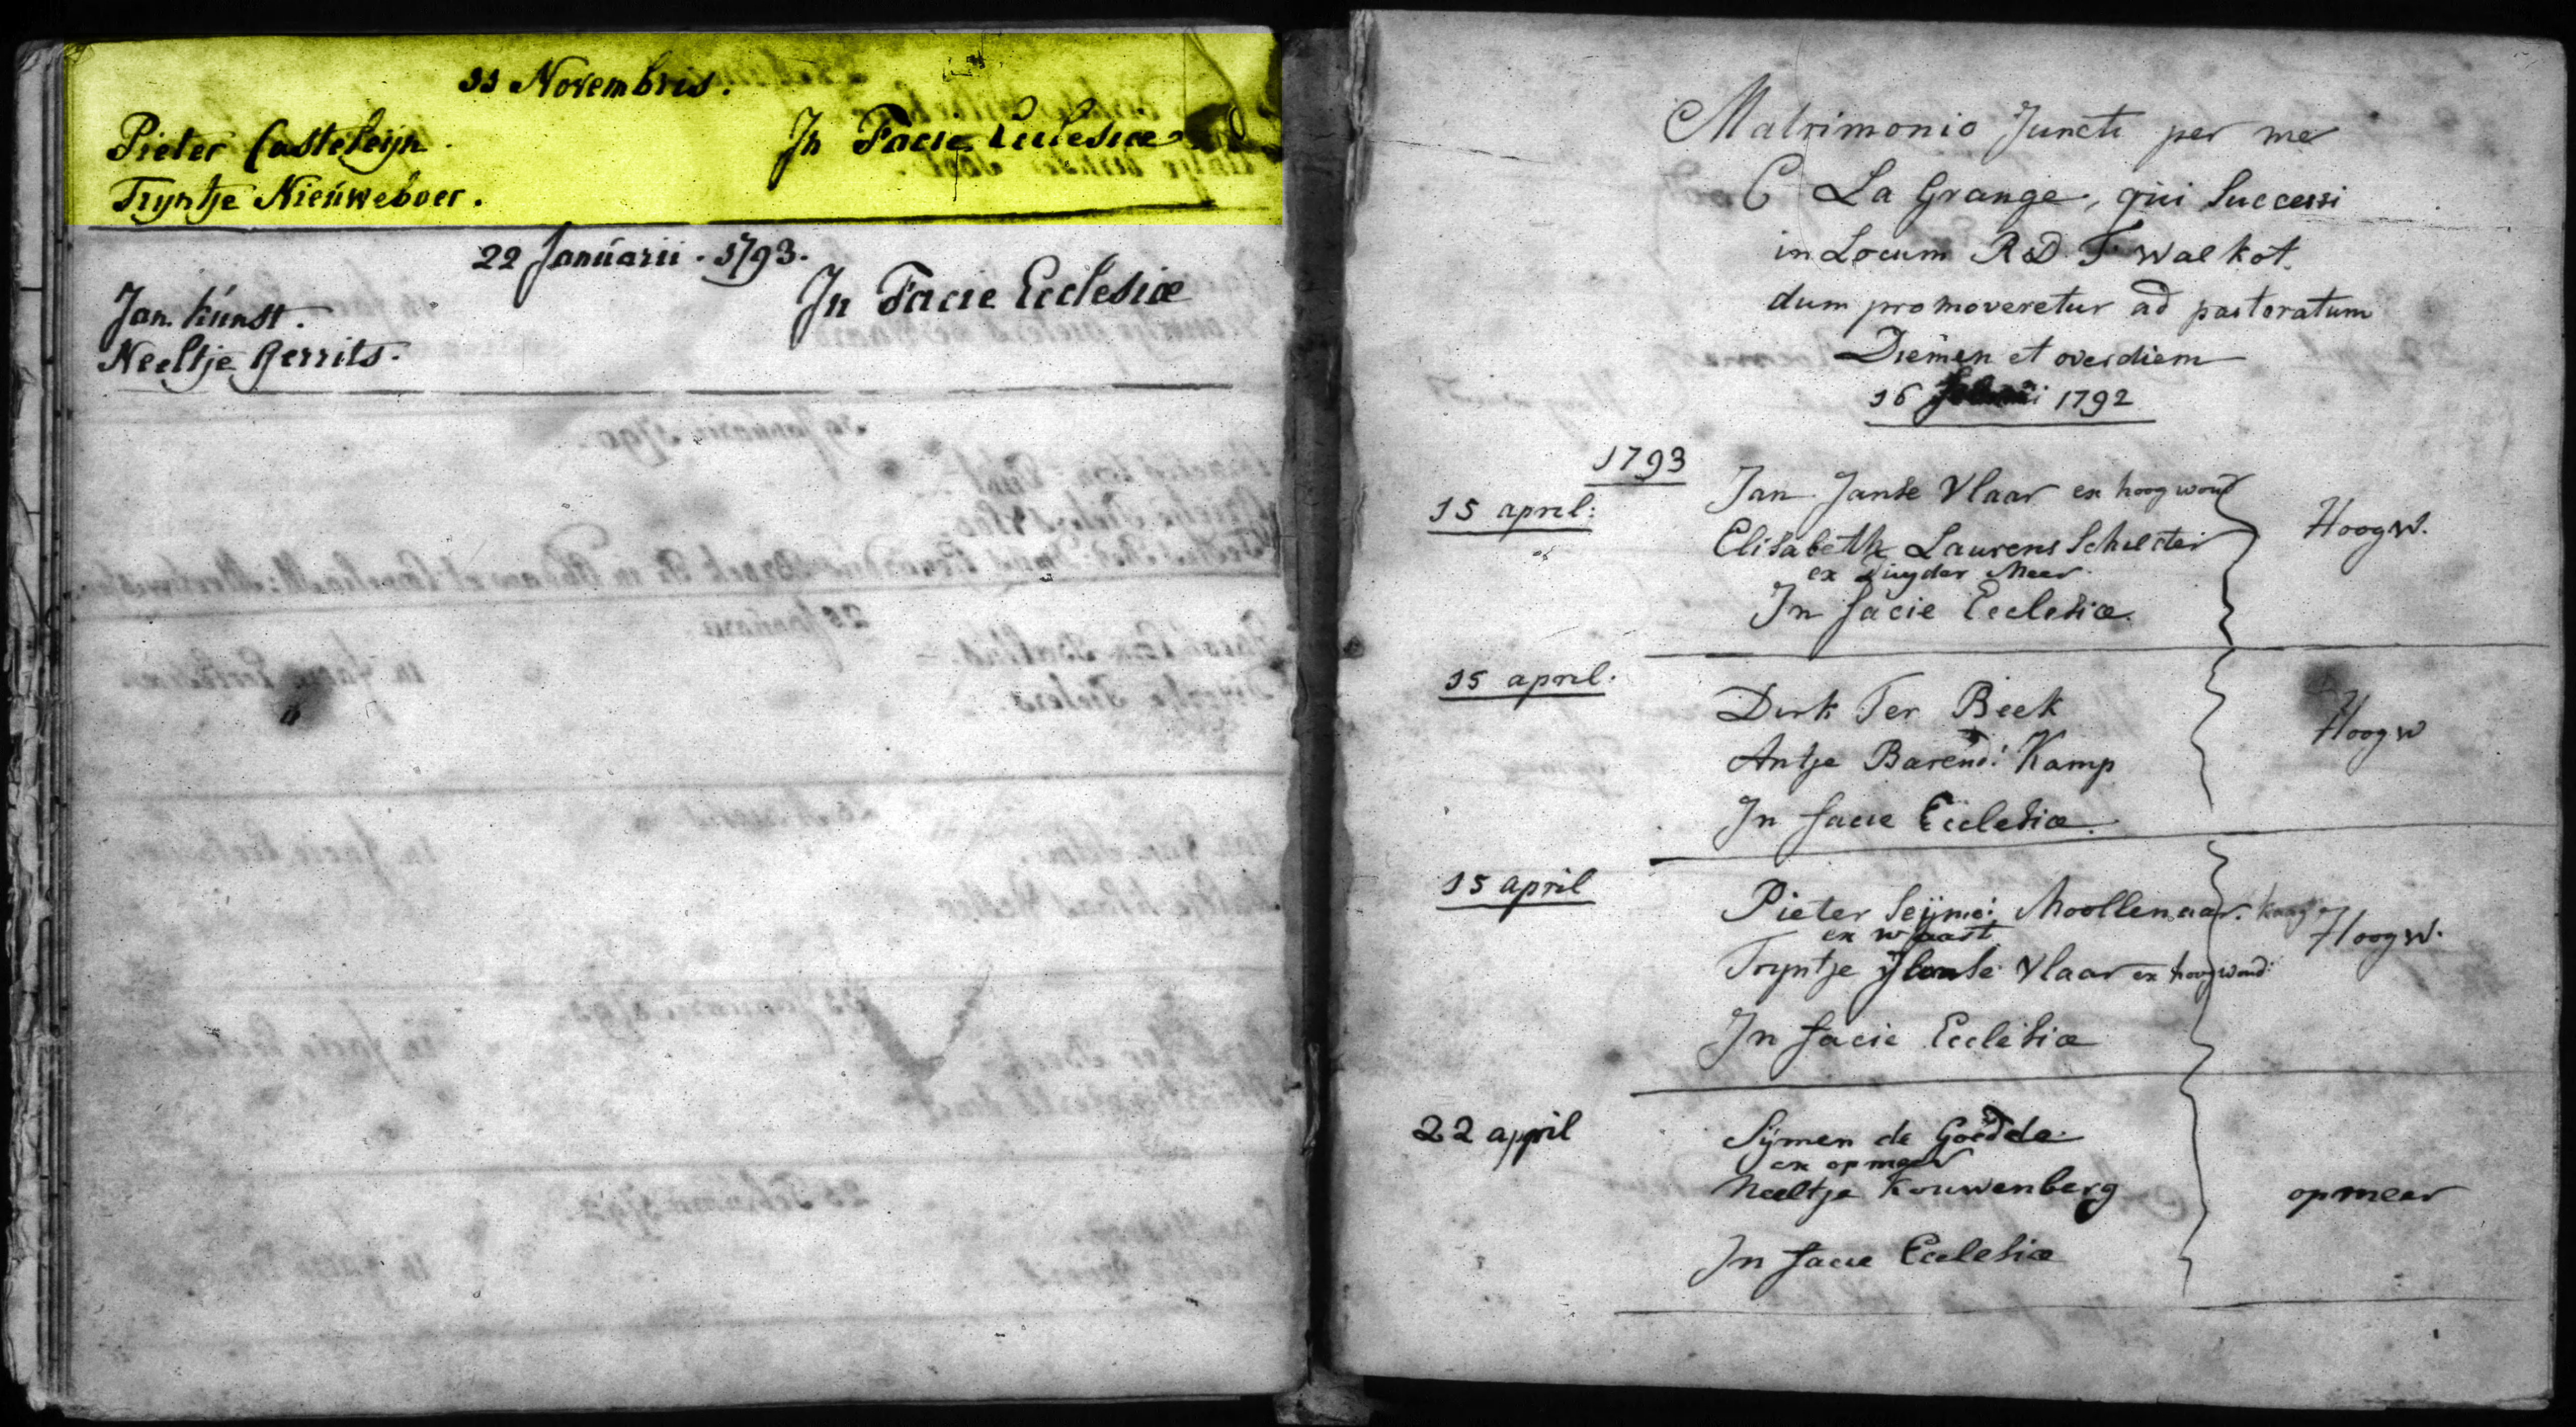 11 Novembris.
Pieter Casteleijn. In Facie Ecclesiæ
Tryntje Nieúweboer.
22 Janúarii. 1793.
Jan. Kúnst. In Facie Ecclesiæ
Neeltje Gerrits.
Matrimonio Juncti per me
C La Grange, qui Successi
in Locum R.D. F Walkot.
dum promoveretur ad pastoratum
Diemen et overdiem
16 1792
1793
15 april: Jan Janse Vlaar ex hoogwoud Hoogw.
Elisabeth Laurens Schuster
ex Meer
In facie Ecclesiæ.
15 april. Dirk Ter Beek Hoogw
Antje Barend: Kamp
In facie Ecclesiæ.
15 april Pieter Seijme: Moollenaar. Hoogw.
ex
Tryntje Vlaar ex hoogwoud:
In facie Ecclesiæ
22 april Sijmen de Goedde
ex opmeer
Neeltje Kouwenberg opmeer
In facie Ecclesiæ